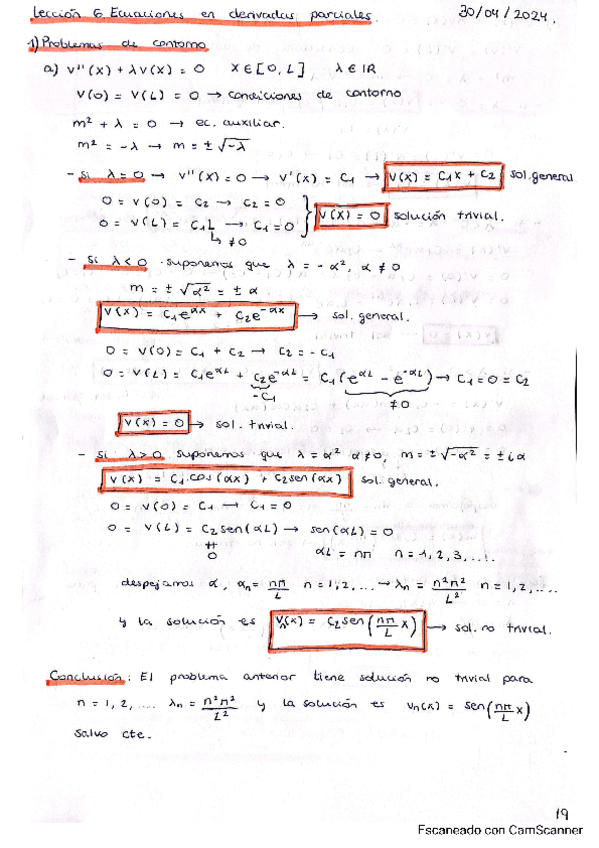 Lección 6. Ecuaciones en derivadas parciales. 30/04/2024.
1) Problemas de contorno
a) v''(x) + λv(x) = 0 x ∈ [0, L] λ ∈ IR
v(0) = v(L) = 0 → condiciones de contorno
m² + λ = 0 → ec. auxiliar.
m² = -λ → m = ± √-λ
- Si λ = 0 → v''(x) = 0 → v'(x) = C₁ → v(x) = C₁x + C₂ sol. general
0 = v(0) = C₂ → C₂ = 0
0 = v(L) = C₁L → C₁ = 0 } v(x) = 0 solución trivial.
↳ ≠0
- Si λ < 0 suponemos que λ = - α², α ≠ 0
m = ± √α² = ± α
v(x) = C₁e^αx + C₂e^-αx → sol. general.
0 = v(0) = C₁ + C₂ → C₂ = - C₁
0 = v(L) = C₁e^αL + C₂e^-αL = C₁(e^αL - e^-αL) → C₁ = 0 = C₂
-C₁ ≠0
v(x) = 0 → sol. trivial.
- Si λ > 0 suponemos que λ = α² α ≠ 0, m = ± √-α² = ± i α
v(x) = C₁ cos(αx) + C₂ sen(αx) sol. general.
0 = v(0) = C₁ → C₁ = 0
0 = v(L) = C₂ sen(αL) → sen(αL) = 0
≠ 0 αL = nπ n = 1, 2, 3, ....
despejamos α, αₙ = nπ/L n = 1, 2, ... → λₙ = n²π²/L² n = 1, 2, ....
y la solución es vₙ(x) = C₂ sen(nπ/L x) → sol. no trivial.
Conclusión: El problema anterior tiene solución no trivial para
n = 1, 2, .... λₙ = n²π²/L² y la solución es vₙ(x) = sen(nπ/L x)
salvo cte.
19
Escaneado con CamScanner